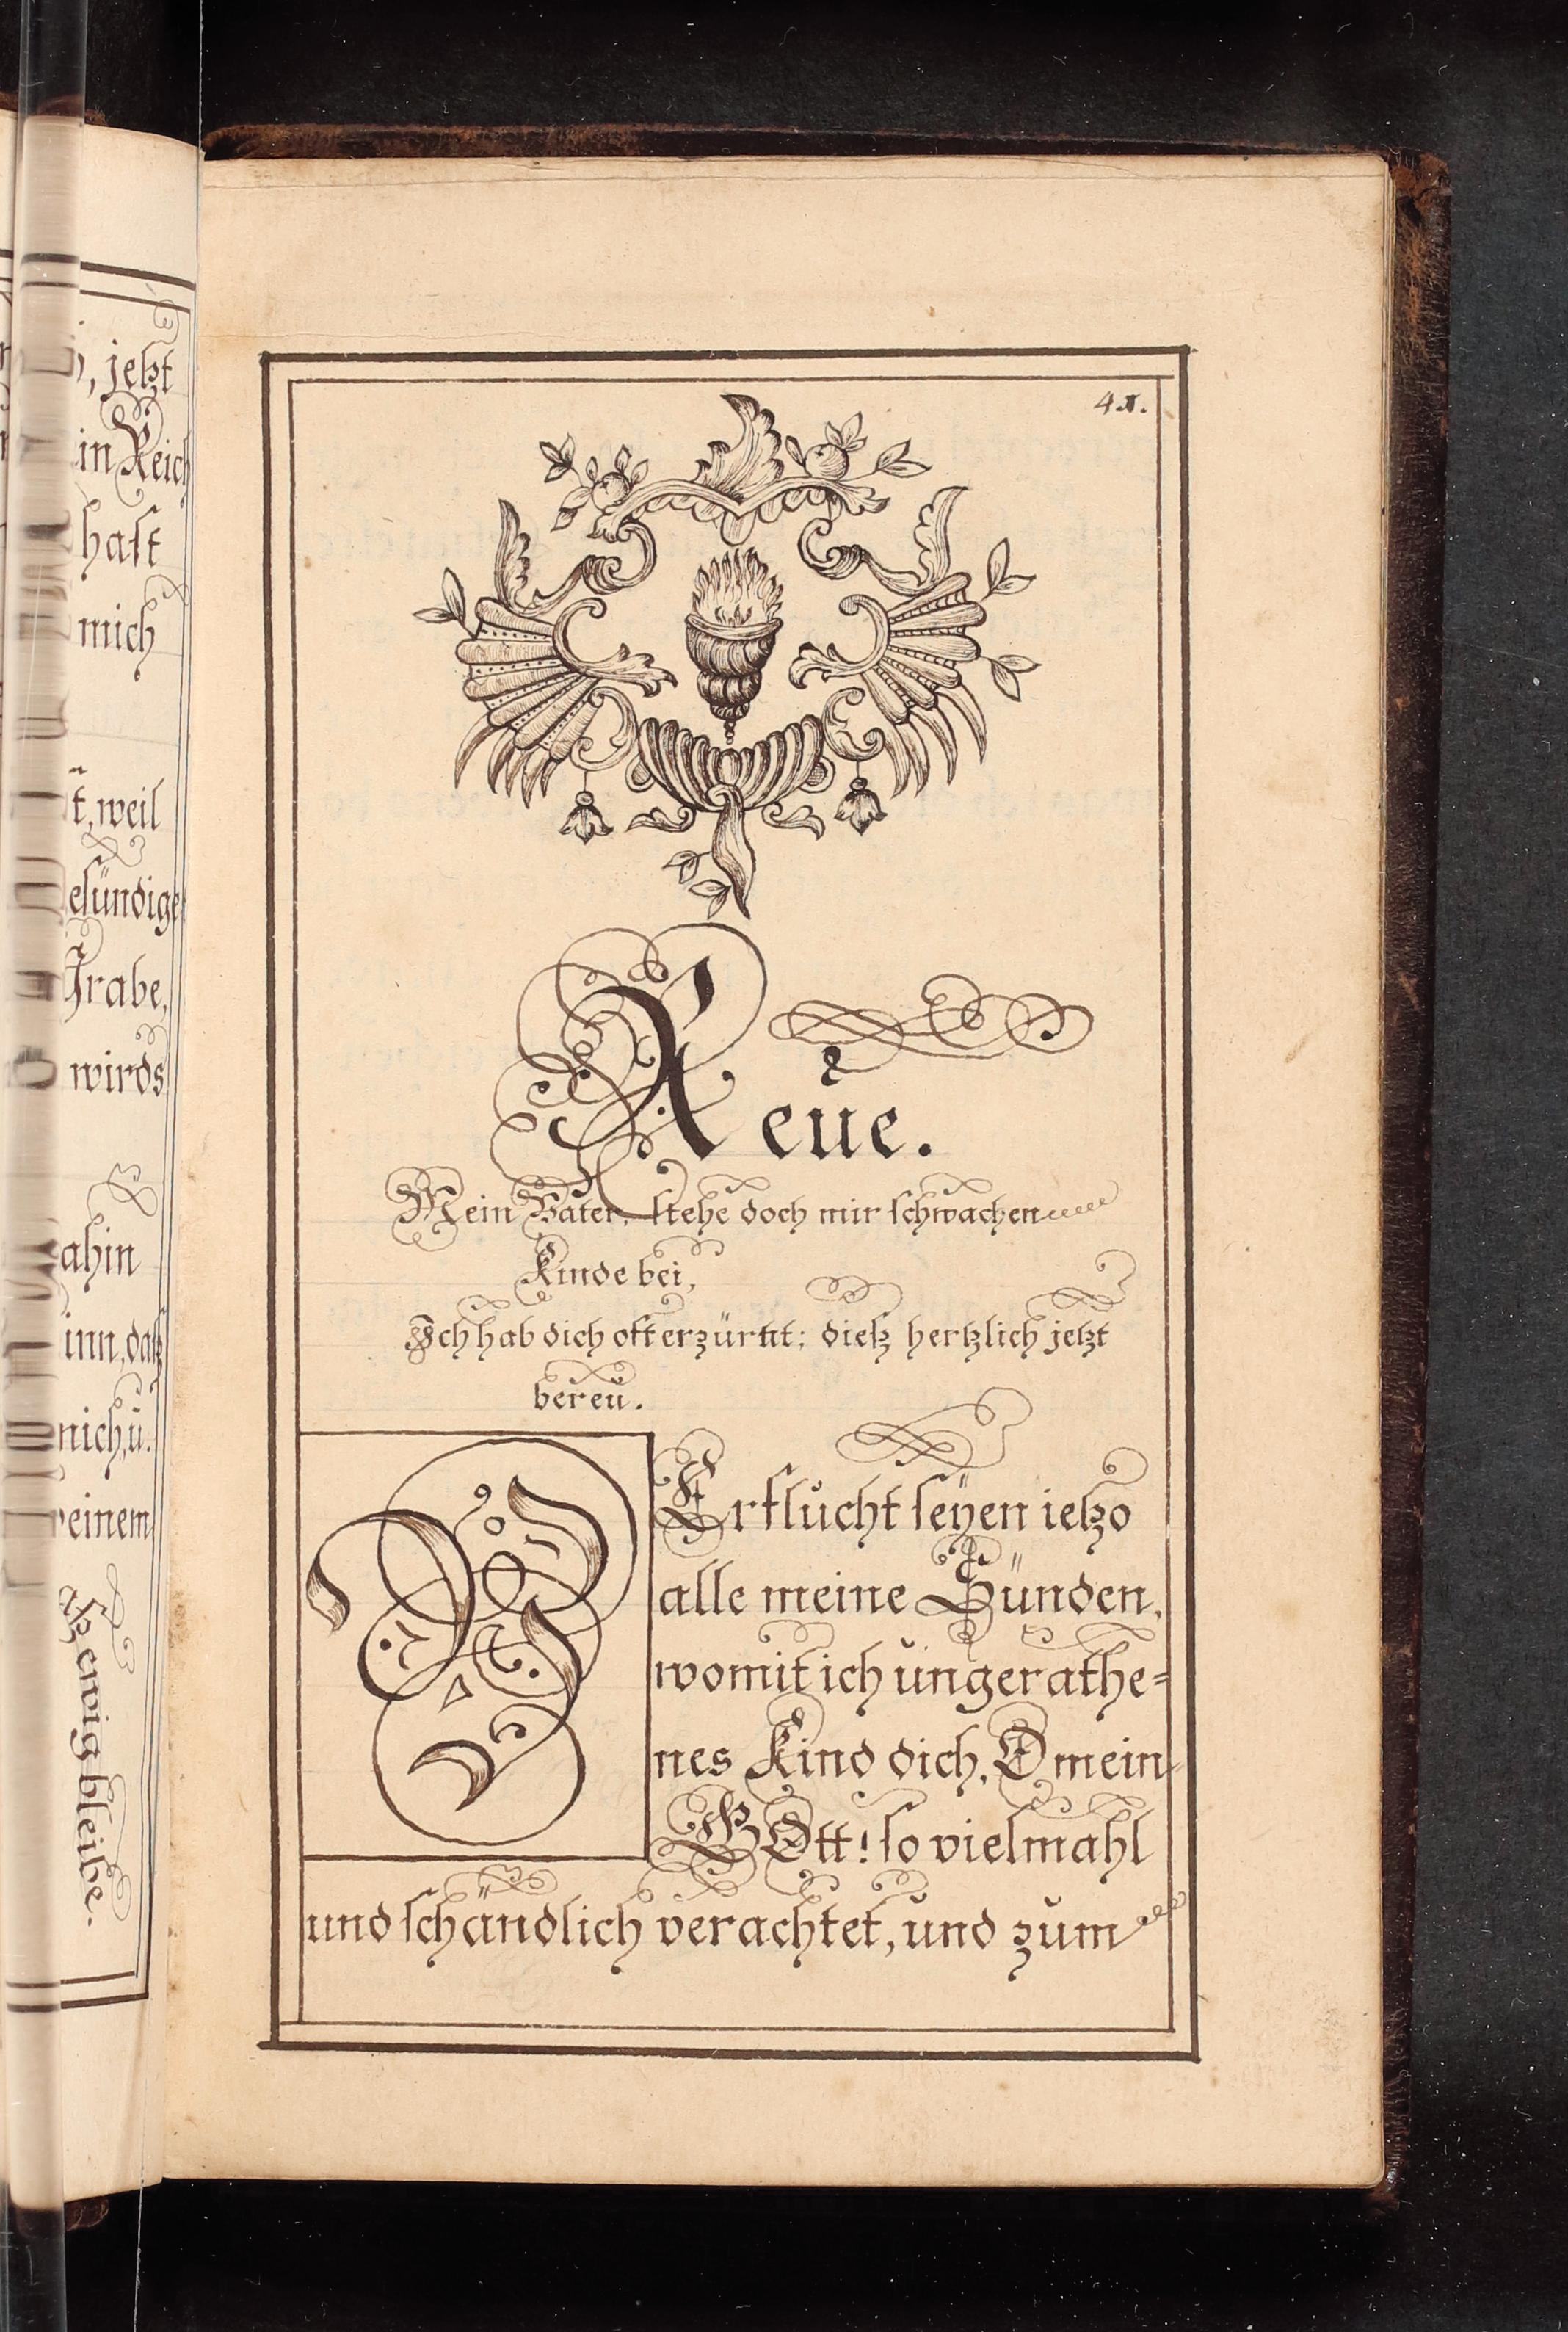 , jetzt
in Reich
hast
mich
weil
esündiget
Grabe,
wirds
ahin
inn, daß
mich, ü.
einem
ewig bleibe.
41.
Reüe.
Mein Vater, stehe doch mir schwachen
Kinde bei,
Ich hab dich oft erzürnt; dieß hertzlich jetzt
bereü.
VErflucht seÿen ietzo
alle meine Sünden,
womit ich ungerathe=
nes Kind dich, O mein
GOtt! so vielmahl
und schändlich verachtet, und zum